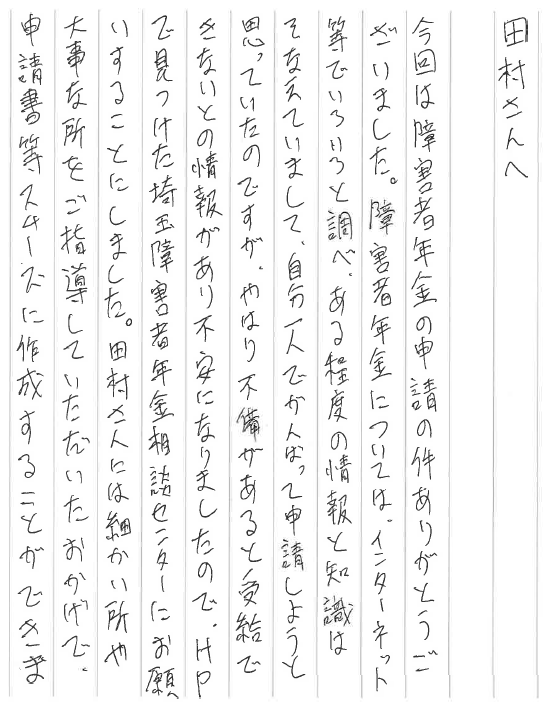 田村さんへ
今回は障害者年金の申請の件ありがとうご
ざいました。障害者年金については、インターネット
等でいろいろと調べ、ある程度の情報と知識は
そなえていまして、自分一人でがんばって申請しようと
思っていたのですが、やはり不備があると受給で
きないとの情報があり不安になりましたので、HP
で見つけた埼玉障害者年金相談センターにお願
いすることにしました。田村さんには細かい所や
大事な所をご指導していただいたおかげで、
申請書等スムーズに作成することができま